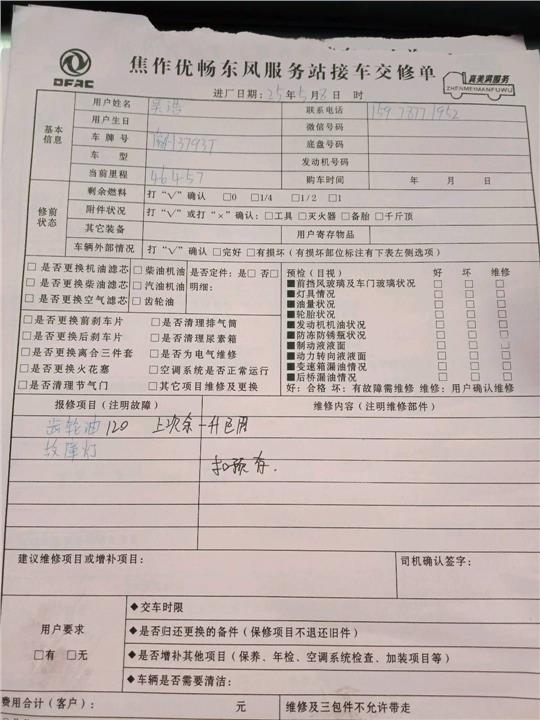 DFAC
焦作优畅东风服务站接车交修单
真美满服务
ZHENMEIMANFUWU
进厂日期：25年5月3日 时
基本信息
用户姓名 吴浩 联系电话 15978771952
用户生日 微信号码
车牌号 13793T 底盘号码
车 型 发动机号码
当前里程 46457 购车时间 年 月 日
修前状态
剩余燃料 打“√”确认 □0 □1/4 □1/2 □1
附件状况 打“√”或打“×”确认：□工具 □灭火器 □备胎 □千斤顶
其它装备 用户寄存物品
车辆外部情况 打“√”确认 □完好 □有损坏（有损坏部位标注有下表左侧选项）
□是否更换机油滤芯 □柴油机油 是否定件：是□ 否□
□是否更换柴油滤芯 □汽油机油 明细：
□是否更换空气滤芯 □齿轮油
□是否更换前刹车片 □是否清理排气筒
□是否更换后刹车片 □是否清理尿素箱
□是否更换离合三件套 □是否为电气维修
□是否更换火花塞 □空调系统是否正常运行
□是否清理节气门 □其它项目维修及更换
预检（目视） 好 坏 维修
■前挡风玻璃及车门玻璃状况 □ □ □
■灯具情况 □ □ □
■油量状况 □ □ □
■轮胎状况 □ □ □
■发动机机油情况 □ □ □
■防冻防锈瓶状况 □ □ □
■制动液液面 □ □ □
■动力转向液液面 □ □ □
■变速箱漏油情况 □ □ □
■后桥漏油情况 □ □ □
好：合格 坏：有故障需维修 维修：用户确认维修
报修项目（注明故障） 维修内容（注明维修部件）
齿轮油 120 上次余一升已用
故障灯
扣预存.
建议维修项目或增补项目： 司机确认签字：
用户要求
□有 □无
◆交车时限
◆是否归还更换的备件（保修项目不退还旧件）
◆是否增补其他项目（保养、年检、空调系统检查、加装项目等）
◆车辆是否需要清洁：
费用合计（客户）： 元 维修及三包件不允许带走